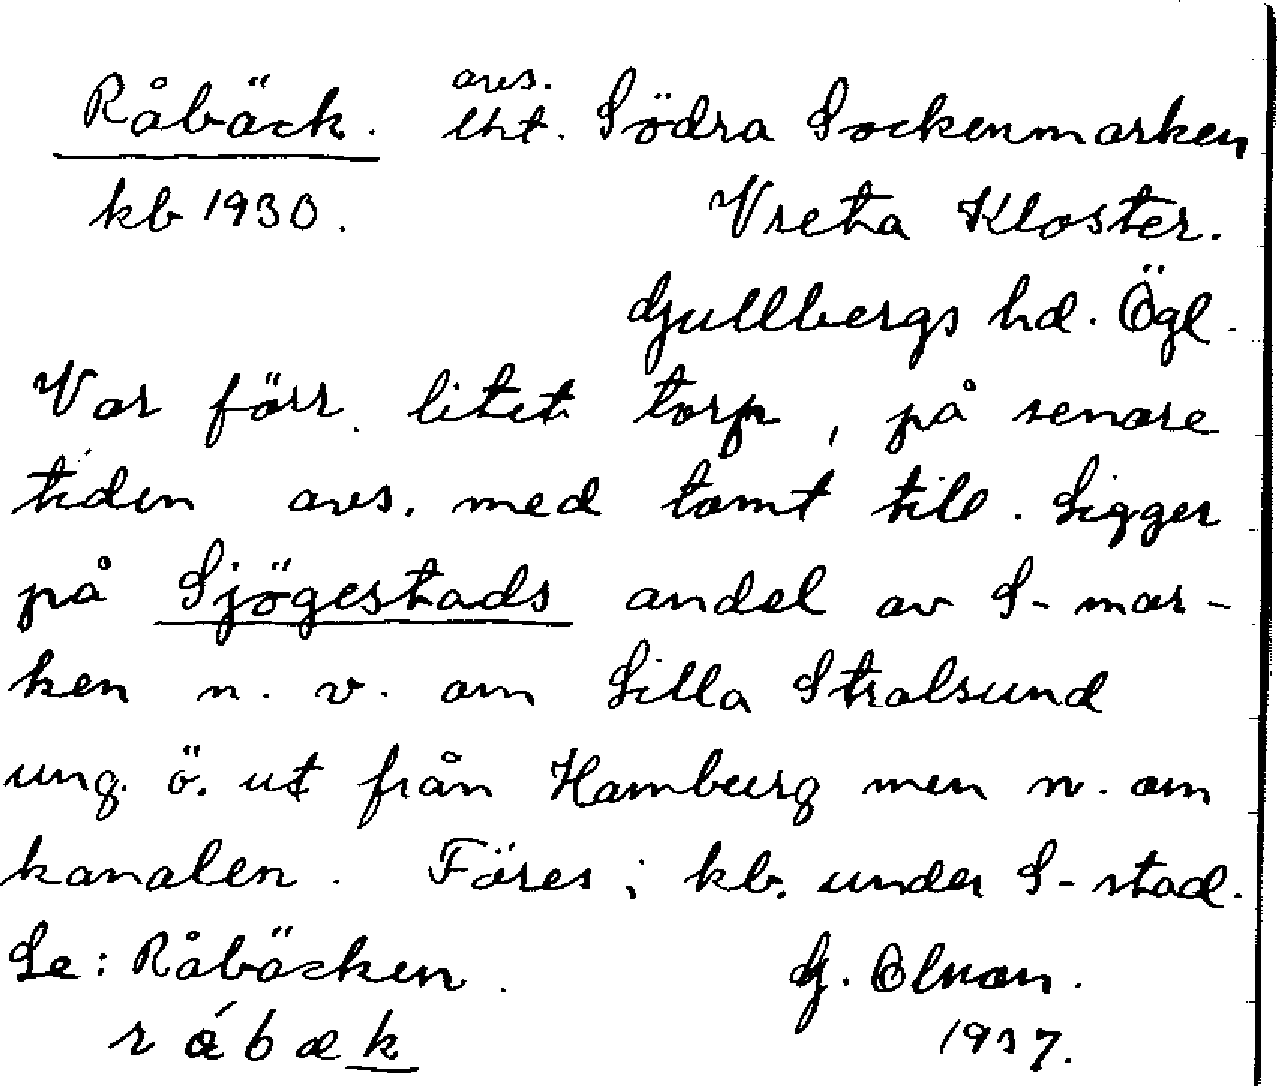 Råbäck. avs. lht. Södra Sockenmarken
kb 1930. Vreta Kloster.
Gullbergs hd. Ögl.
Var förr litet torp, på senare
tiden avs. med tomt till. Ligger
på Sjögestads andel av S-mar-
ken n. v. om Lilla Stralsund
ung. ö. ut från Hamburg men n. om
kanalen. Föres i kb. under S-stad.
Se: Råbäcken. G. Olnan.
råbæk 1937.